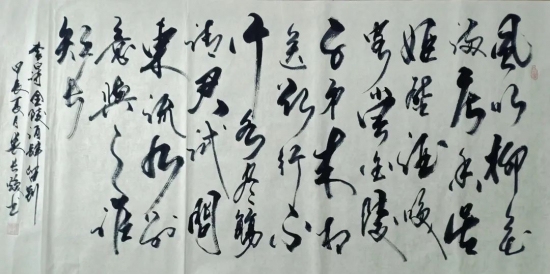 風吹柳花
滿店香吴
姬壓酒喚
客嘗金陵
子弟來相
送欲行不
行各盡觴
請君試問
東流水別
意與之誰
短長
李白金陵酒肆留別
甲辰夏月吴長書